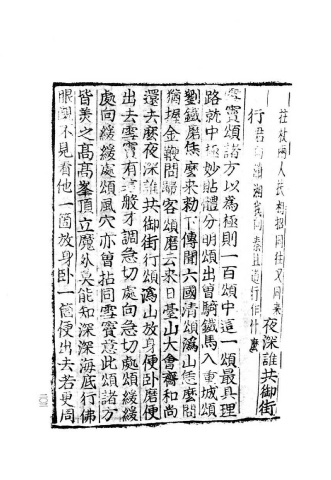 拄杖兩人扶相招同往又同來夜深誰共御街
行君向瀟湘我向秦且道行作什麼
雪竇頌諸方以為極則一百頌中這一頌最具理
路就中極妙貼體分明頌出曾騎鐵馬入重城頌
劉鐵磨恁麼來勑下傳聞六國清頌溈山恁麼問
猶握金鞭問歸客頌磨云來日臺山大會齋和尚
還去麼夜深誰共御街行頌溈山放身便臥磨便
出去雪竇有這般才調急切處向急切處頌緩緩
處向緩緩處頌風穴亦曾拈同雪竇意此頌諸方
皆美之高高峯頂立魔外莫能知深深海底行佛
眼覷不見看他一箇放身臥一箇便出去若更周